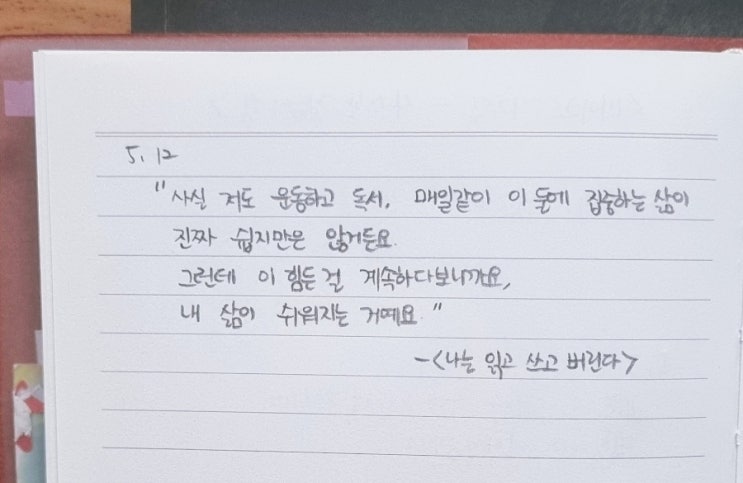 5. 12
"사실 저도 운동하고 독서, 매일같이 이 둘에 집중하는 삶이
진짜 쉽지만은 않거든요.
그런데 이 힘든 걸 계속하다보니까요,
내 삶이 쉬워지는 거예요."
-<나는 읽고 쓰고 버린다>